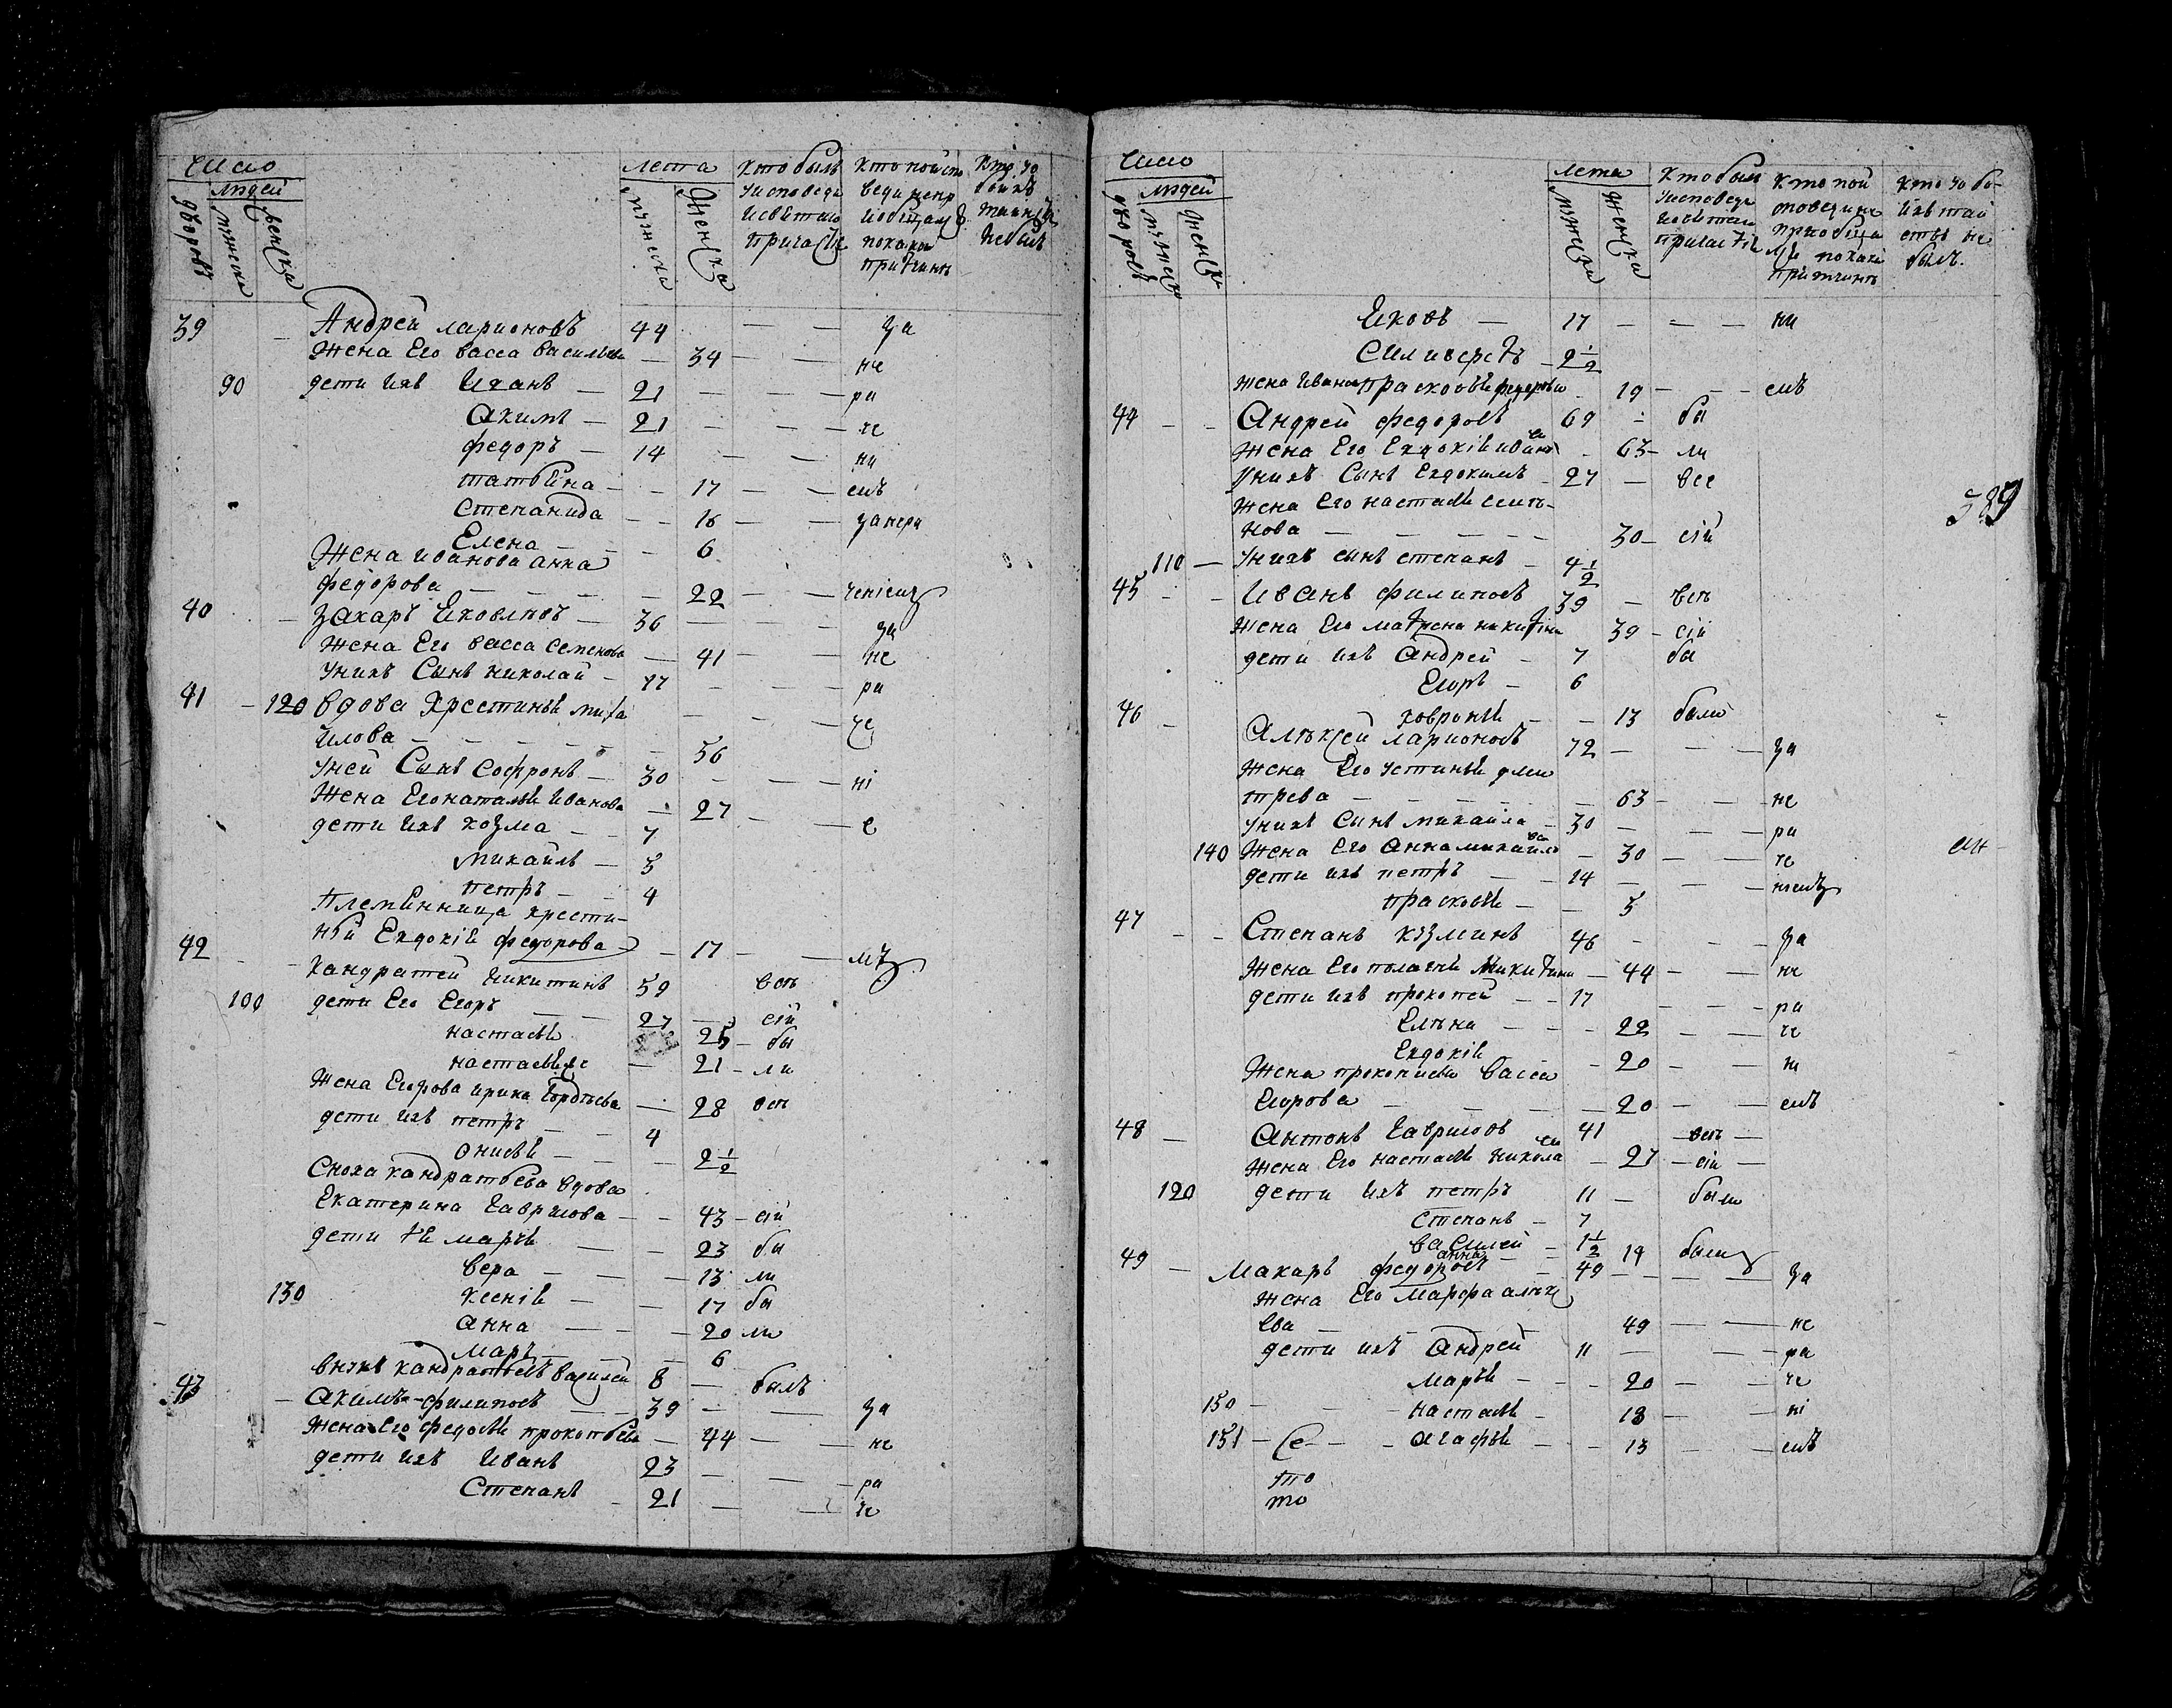 Число
людей
дворовъ
мужеска
женска
лета
мужеска
женска
кто былъ
уисповеди
исвятаго
причастiя
кто поиспо
веди непр
иобщался
покакои
притчине
39 Андрей ларионовъ 44 — — за
Жена Его васса василева — 34 — — не
90 дети ихъ Иванъ — 21 — — — ра
Акимъ — 21 — — — че
федоръ — 14 — — ни
татьяна — — 17 — — емъ
Степанида — — 16 — — занера
Елена — — — 6
Жена иванова анна
федорова — — — — 22 — — ченiемъ
40 — Захаръ Яковлевъ — 36 — — — за
Жена Его васса Семенова — 41 — — не
Унихъ Сынъ николай — 17 — — — ра
41 — 120 вдова Хрестинья миха
илова — — — — 56 че
Уней Сынъ Софронъ — 30 — — — нi
Жена Егонаталья Иванова — 27 — — е
дети ихъ козма — — 7
михаилъ — 5
петръ — 4
племянница хрести-
ньи Евдокiя федорова — 17 — — мъ
42 — — кандратей никитинъ 59 всъ
100 дети Его Егоръ — — 27 — сiи
настасья 25 — бы
настасьяже — 21 — ли
Жена Егорова ирина Гордъева — 28 всъ
дети ихъ петръ — — 4
онисья — — — 2 1/2
Сноха кандратьева вдова
Екатерина Гаврилова — — 43 — сiи
дети Ея марья — — 23 бы
вера — — — 13 ли
130 Ксенiя — — 17 бы
анна — — — 20 ли
Марья — — 6
внукъ кандратьевъ василей 8 — былъ
43 — Акимъ филиповъ — — 39 — — за
Жена Его федосья прокопьева — 44 — — не
дети ихъ Иванъ 23 — — — ра
Степанъ — 21 — — че
Число
людей
дворовъ
мужеска
женска
лета
мужеска
женска
кто былъ
уисповеди
причастiя
кто пои
споведине
приобща
лся покакои
притчине
кто убо-
былъ.
Яковъ — 17 — — — ни
Силиверстъ — 2 1/2
жена Иванапрасковья федорова 19 — — — емъ
44 — — Андрей федоровъ 69 — бы
Жена Его Евдокiя иванова — 63 — ли
Унихъ Сынъ Евдокимъ — 27 — все
Жена Его настасья семъ-
нова — — — — — 30 — сiи
110 — Унихъ сынъ степанъ — 4 1/2
45 — — Иванъ филиповъ 39 — всъ
Жена Его матрена никитина 39 — сiи
дети ихъ Андрей — 7 бы
Егоръ — 6
ховронья — — 13 были
389
46 — Алъксей ларионовъ 72 — — — за
Жена Его устинья дми
трева — — — — — 63 — — не
Унихъ Сынъ михаила — 30 — — ра
140 Жена Его анна михайлова — 30 — — че
дети ихъ петръ — — 14 — — — нiемъ
прасковья — — 5
47 — — Степанъ кузминъ 46 — — — за
Жена Его полагея Никитина — 44 — — не
дети ихъ прокопей — — 17 — — — ра
Елъна — — — 22 — — че
Евдокiя — 20 — — ни
Жена прокопиева васса
Егорова — — — — 20 — — емъ
48 — Антонъ Гавриловъ 41 — всъ —
Жена Его настасья никола — 27 — сiи —
120 дети ихъ петръ 11 — были
Степанъ — 7
василей — 1 1/2
анна — 19 были
49 — Макаръ федоровъ — 49 — — — за
Жена Его Марфа алъксе
ева — — — 49 — — не
дети ихъ Андрей 11 — — — ра
Марья — — — 20 — — че
150 — — — настасья — 18 — — нi
151 — Се — — агафья — — 13 — — емъ
то
то